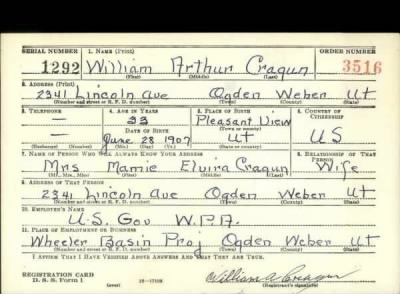 SERIAL NUMBER 1. NAME (Print) ORDER NUMBER
1292 William Arthur Cragun 3516
(First) (Middle) (Last)
2. ADDRESS (Print)
2341 Lincoln Ave Ogden Weber Ut
(Number and street or R. F. D. number) (Town) (County) (State)
3. TELEPHONE 4. AGE IN YEARS 5. PLACE OF BIRTH 6. COUNTRY OF CITIZENSHIP
— 33 Pleasant View
DATE OF BIRTH (Town or county)
— June 28 1907 Ut U S
(Exchange) (Number) (Mo.) (Day) (Yr.) (State or country)
7. NAME OF PERSON WHO WILL ALWAYS KNOW YOUR ADDRESS 8. RELATIONSHIP OF THAT PERSON
Mrs Mamie Elvira Cragun Wife
(Mr., Mrs., Miss) (First) (Middle) (Last)
9. ADDRESS OF THAT PERSON
2341 Lincoln Ave Ogden Weber Ut
(Number and street or R. F. D. number) (Town) (County) (State)
10. EMPLOYER'S NAME
U.S. Gov W.P.A.
11. PLACE OF EMPLOYMENT OR BUSINESS
Wheeler Basin Proj Ogden Weber Ut
(Number and street or R. F. D. number) (Town) (County) (State)
I AFFIRM THAT I HAVE VERIFIED ABOVE ANSWERS AND THAT THEY ARE TRUE.
REGISTRATION CARD William A Cragun
D. S. S. Form 1 (over) (Registrant's signature)